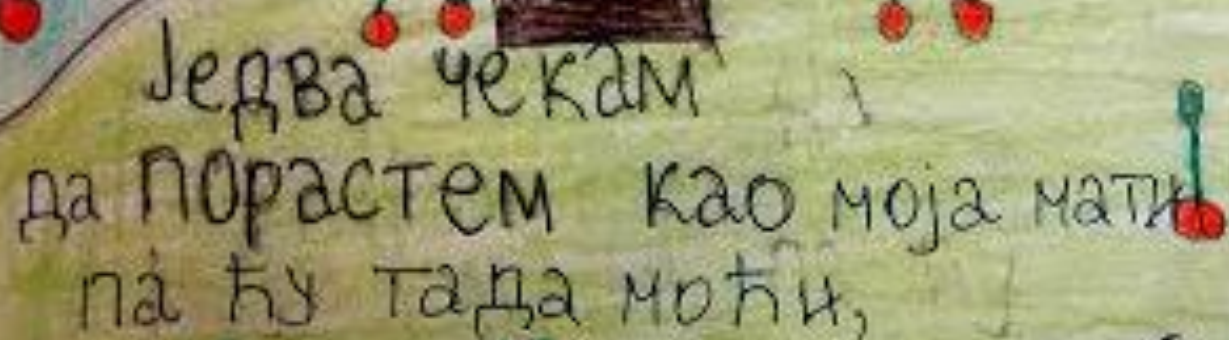 Једва чекам
да порастем као моја мати
па ћу тада моћи,